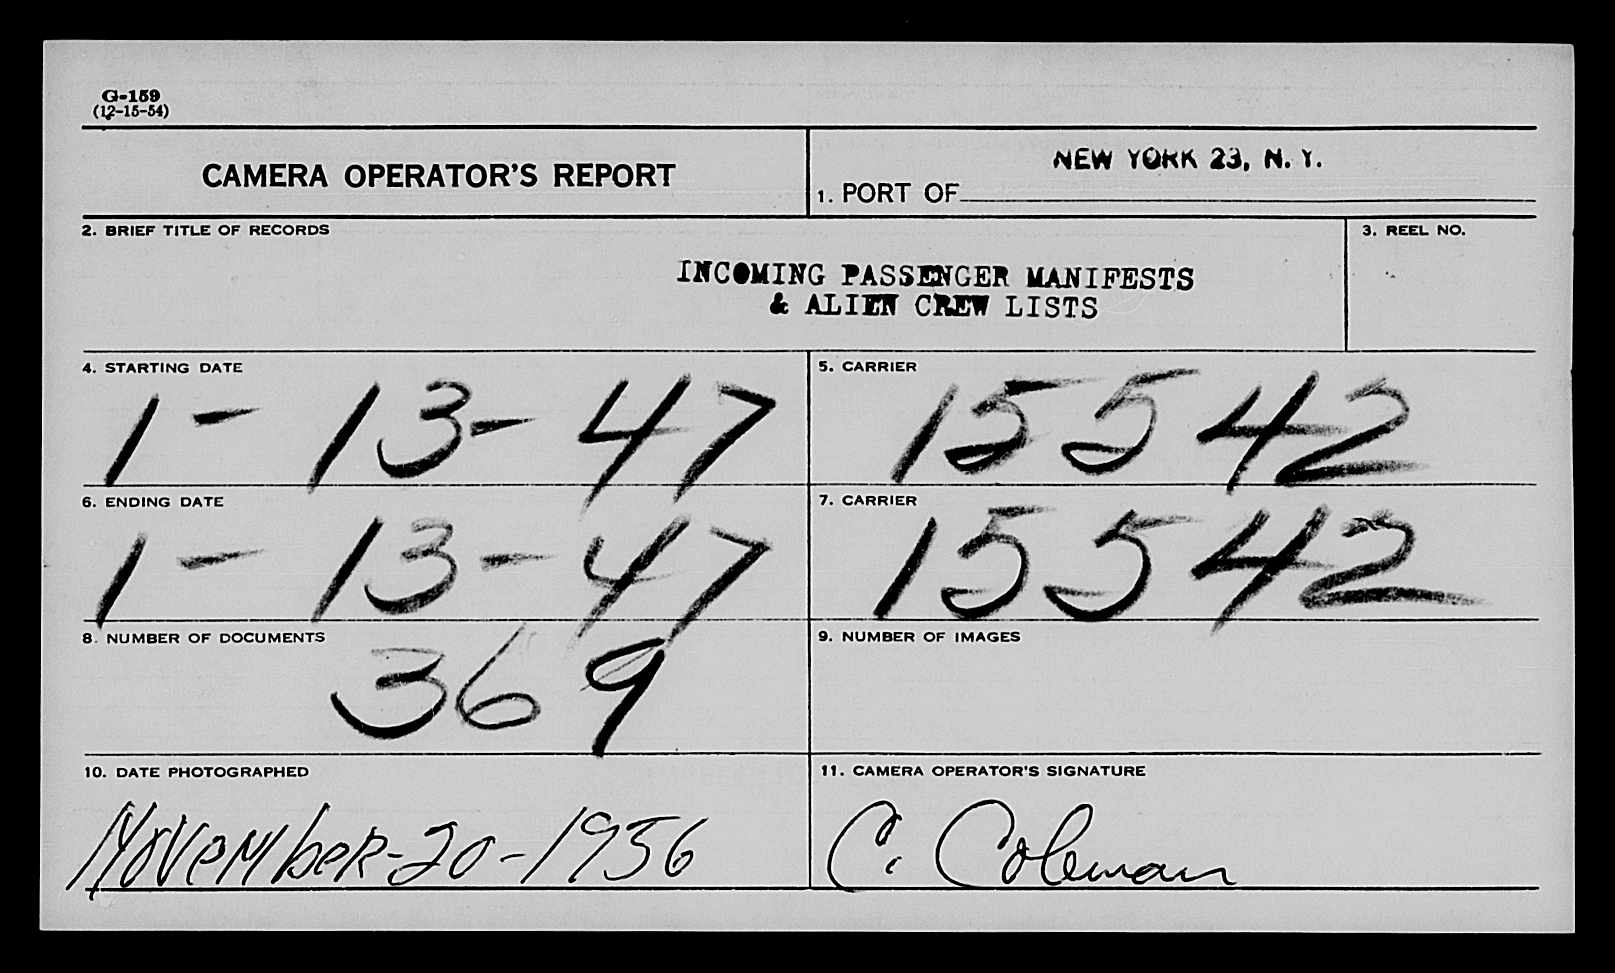 G-159
(12-15-54)
CAMERA OPERATOR'S REPORT
NEW YORK 23, N. Y.
1. PORT OF
2. BRIEF TITLE OF RECORDS
3. REEL NO.
INCOMING PASSENGER MANIFESTS
& ALIEN CREW LISTS
4. STARTING DATE
5. CARRIER
1-13-47
15542
6. ENDING DATE
7. CARRIER
1-13-47
15542
8. NUMBER OF DOCUMENTS
9. NUMBER OF IMAGES
369
10. DATE PHOTOGRAPHED
11. CAMERA OPERATOR'S SIGNATURE
November-20-1956
C. Coleman